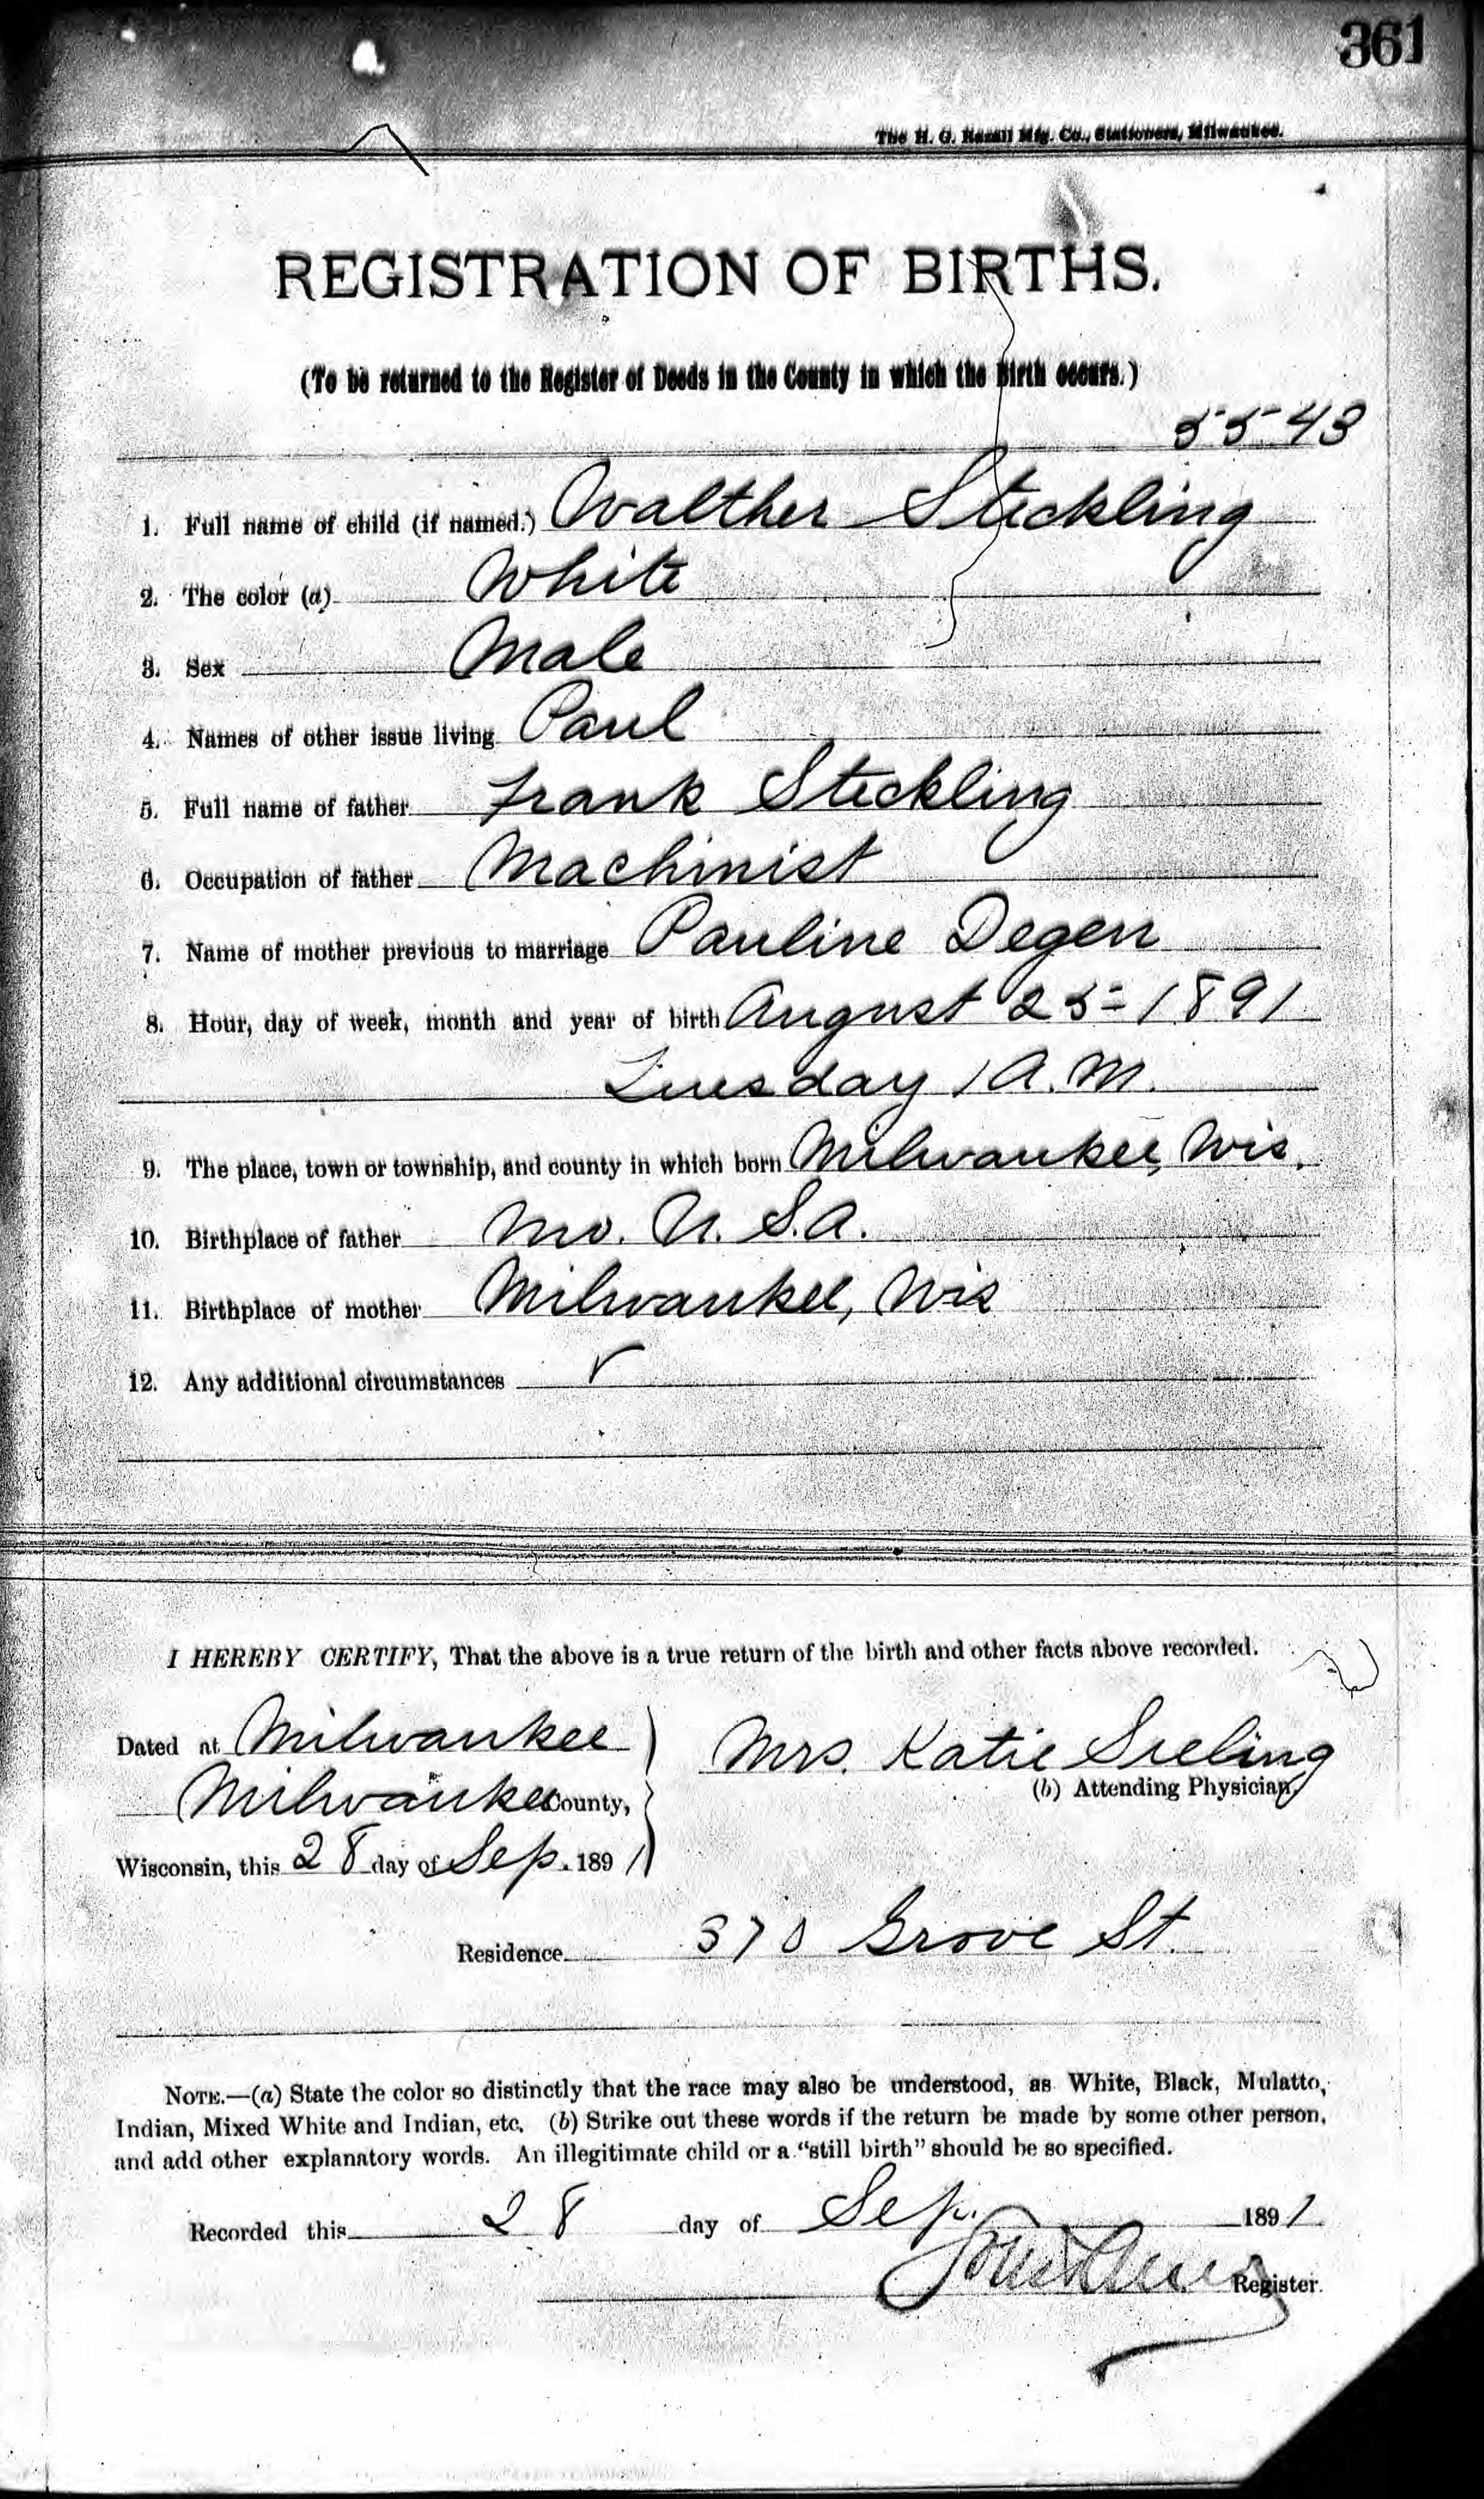 361
The H. G. Razall Mfg. Co., Stationers, Milwaukee.
REGISTRATION OF BIRTHS.
(To be returned to the Register of Deeds in the County in which the Birth occurs.)
5543
1. Full name of child (if named.) Walther Steckling
2. The color (a) White
3. Sex Male
4. Names of other issue living Paul
5. Full name of father Frank Steckling
6. Occupation of father Machinist
7. Name of mother previous to marriage Pauline Degen
8. Hour, day of week, month and year of birth August 25 = 1891
Tuesday 1 A.M.
9. The place, town or township, and county in which born Milwaukee, Wis.
10. Birthplace of father Mo. U. S. A.
11. Birthplace of mother Milwaukee, Wis
12. Any additional circumstances
I HEREBY CERTIFY, That the above is a true return of the birth and other facts above recorded.
Dated at Milwaukee
Milwaukee County,
Wisconsin, this 28 day of Sep. 1891
Mrs. Katie Sieling
(b) Attending Physician,
Residence 370 Grove St.
NOTE.—(a) State the color so distinctly that the race may also be understood, as White, Black, Mulatto,
Indian, Mixed White and Indian, etc. (b) Strike out these words if the return be made by some other person,
and add other explanatory words. An illegitimate child or a "still birth" should be so specified.
Recorded this 28 day of Sep. 1891
Register.